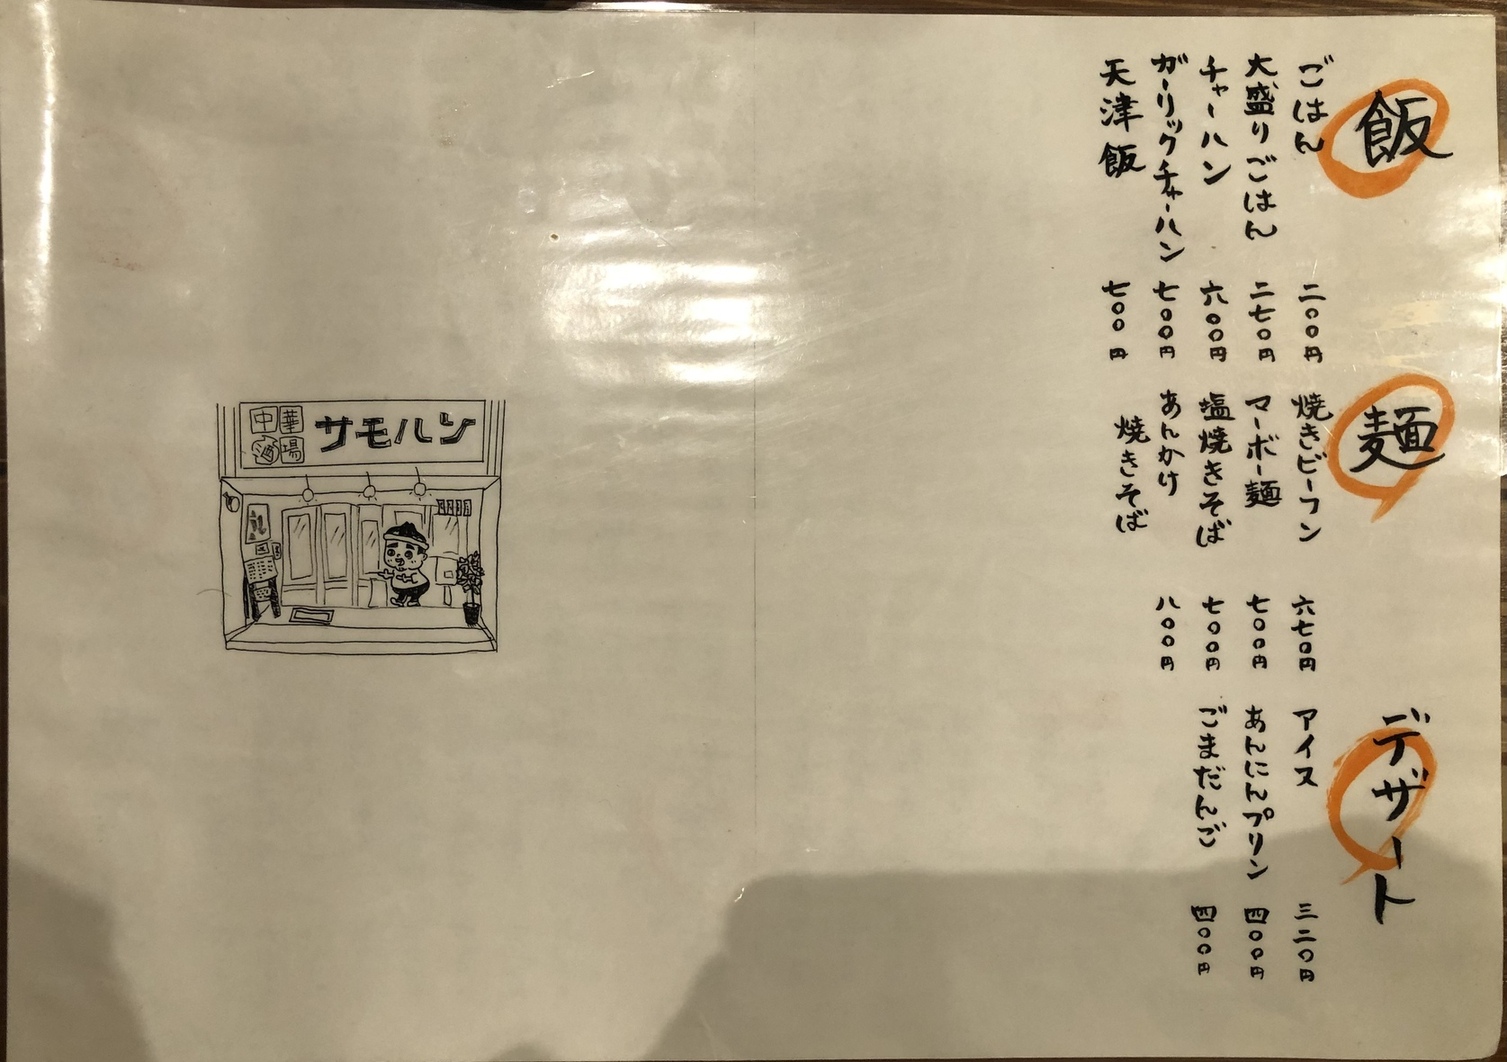 飯
ごはん 二〇〇円
大盛りごはん 二七〇円
チャーハン 六〇〇円
ガーリックチャーハン 七〇〇円
天津飯 七〇〇円
麺
焼きビーフン 六七〇円
マーボー麺 七〇〇円
塩焼きそば 七〇〇円
あんかけ
焼きそば 八〇〇円
デザート
アイス 三二〇円
あんにんプリン 四〇〇円
ごまだんご 四〇〇円
中華
酒場
サモハン